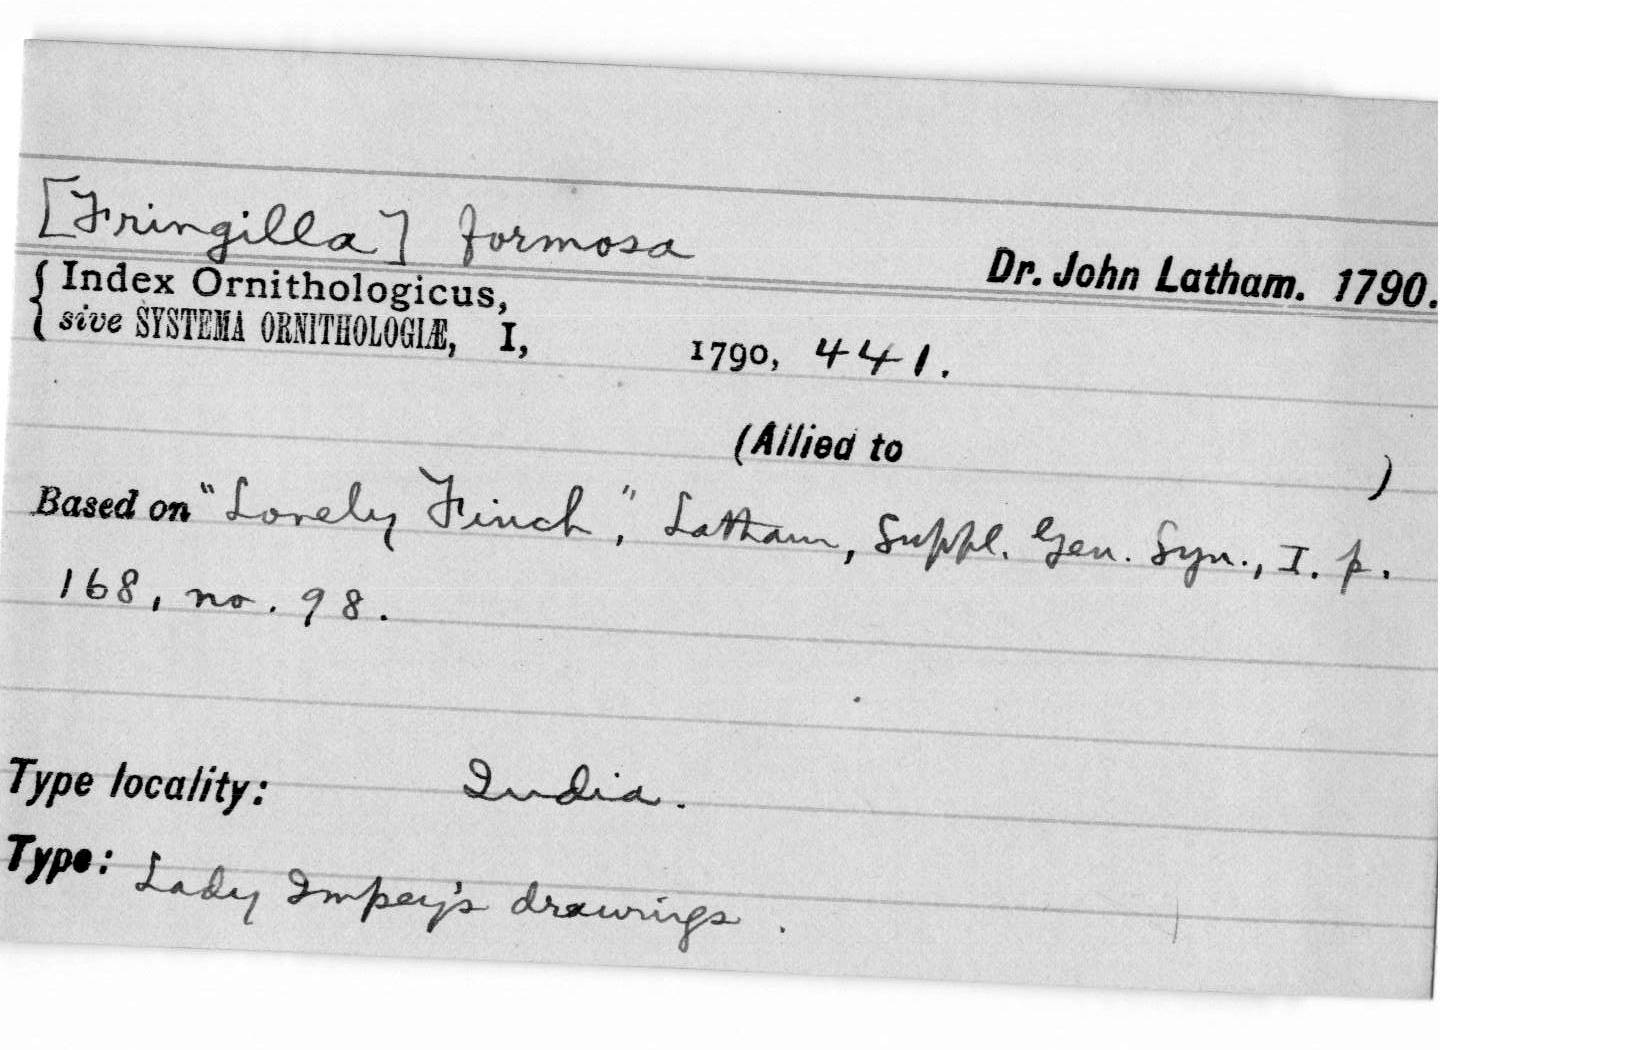 [Fringilla] formosa
Dr. John Latham. 1790.
{ Index Ornithologicus,
sive SYSTEMA ORNITHOLOGIÆ, I, 1790, 441.
(Allied to )
Based on "Lovely Finch", Latham, Suppl. Gen. Syn., I. p.
168, no. 98.
Type locality: India.
Type: Lady Impey's drawings.